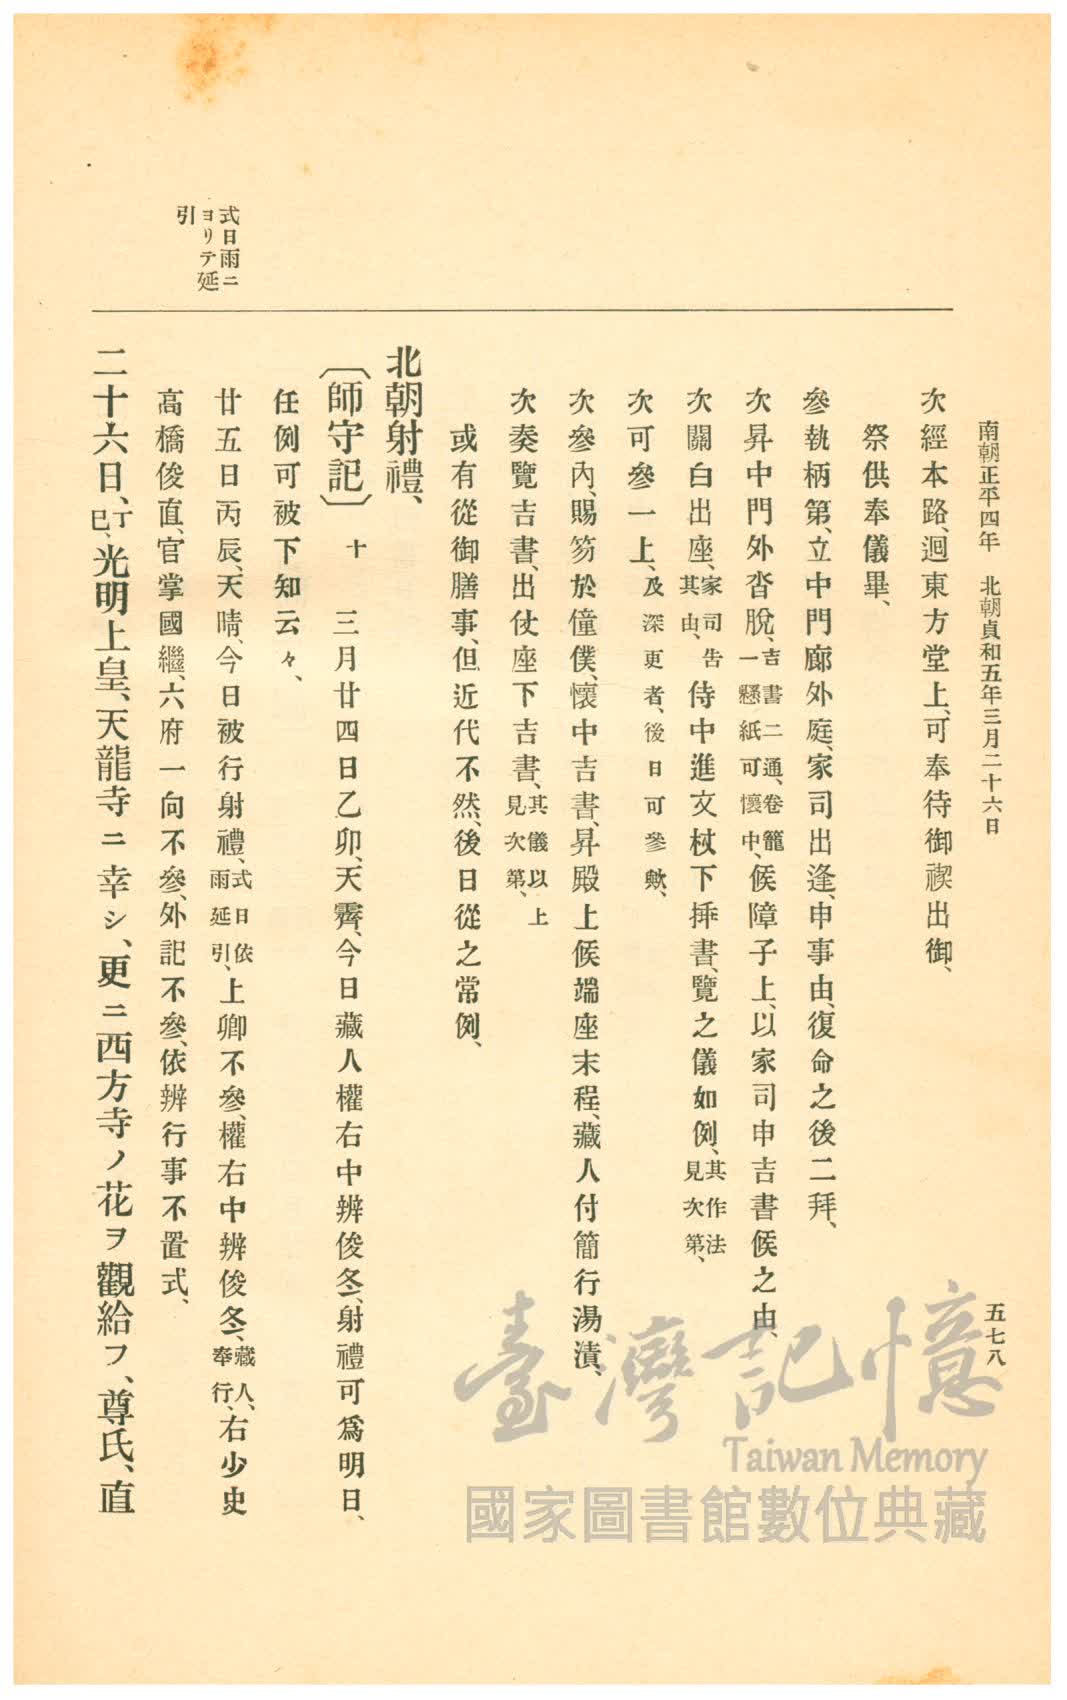 南朝正平四年　北朝貞和五年三月二十六日
五七八
次經本路、迴東方堂上、可奉待御禊出御、
祭供奉儀畢、
參執柄第、立中門廊外庭、家司出逢、申事由、復命之後二拜、
次昇中門外沓脫、吉書二通、卷籠一懸紙可懷中、候障子上、以家司申吉書候之由、
次關白出座、家司告其由、侍中進文杖下揷書、覽之儀如例、其作法見次第、
次可參一上、及深更者、後日可參歟、
次參內、賜笏於僮僕、懷中吉書、昇殿上候端座末程、藏人付簡行湯漬、
次奏覽吉書、出仗座下吉書、其儀以上見次第、
或有從御膳事、但近代不然、後日從之常例、
北朝射禮、
〔師守記〕十　三月廿四日乙卯、天霽、今日藏人權右中辨俊冬、射禮可爲明日、
任例可被下知云々、
廿五日丙辰、天晴、今日被行射禮、式日依雨延引、上卿不參、權右中辨俊冬、藏人、奉行、右少史
高橋俊直、官掌國繼、六府一向不參、外記不參、依辨行事不置式、
式日雨ニ
ヨリテ延
引
二十六日、丁巳、光明上皇、天龍寺ニ幸シ、更ニ西方寺ノ花ヲ觀給フ、尊氏、直
臺灣記憶
Taiwan Memory
國家圖書館數位典藏